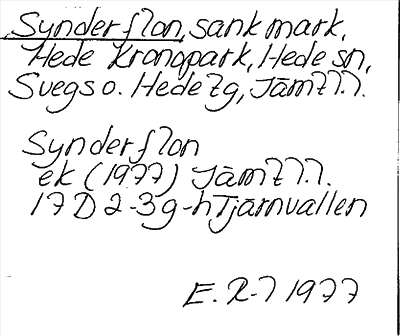 Synderflon, sank mark,
Hede Kronopark, Hede sn,
Svegs o. Hede tg, Jämtl.l.
Synderflon
ek (1977) Jämtl.l.
17D 2-3g-h Tjärnvallen
E. R-l 1977